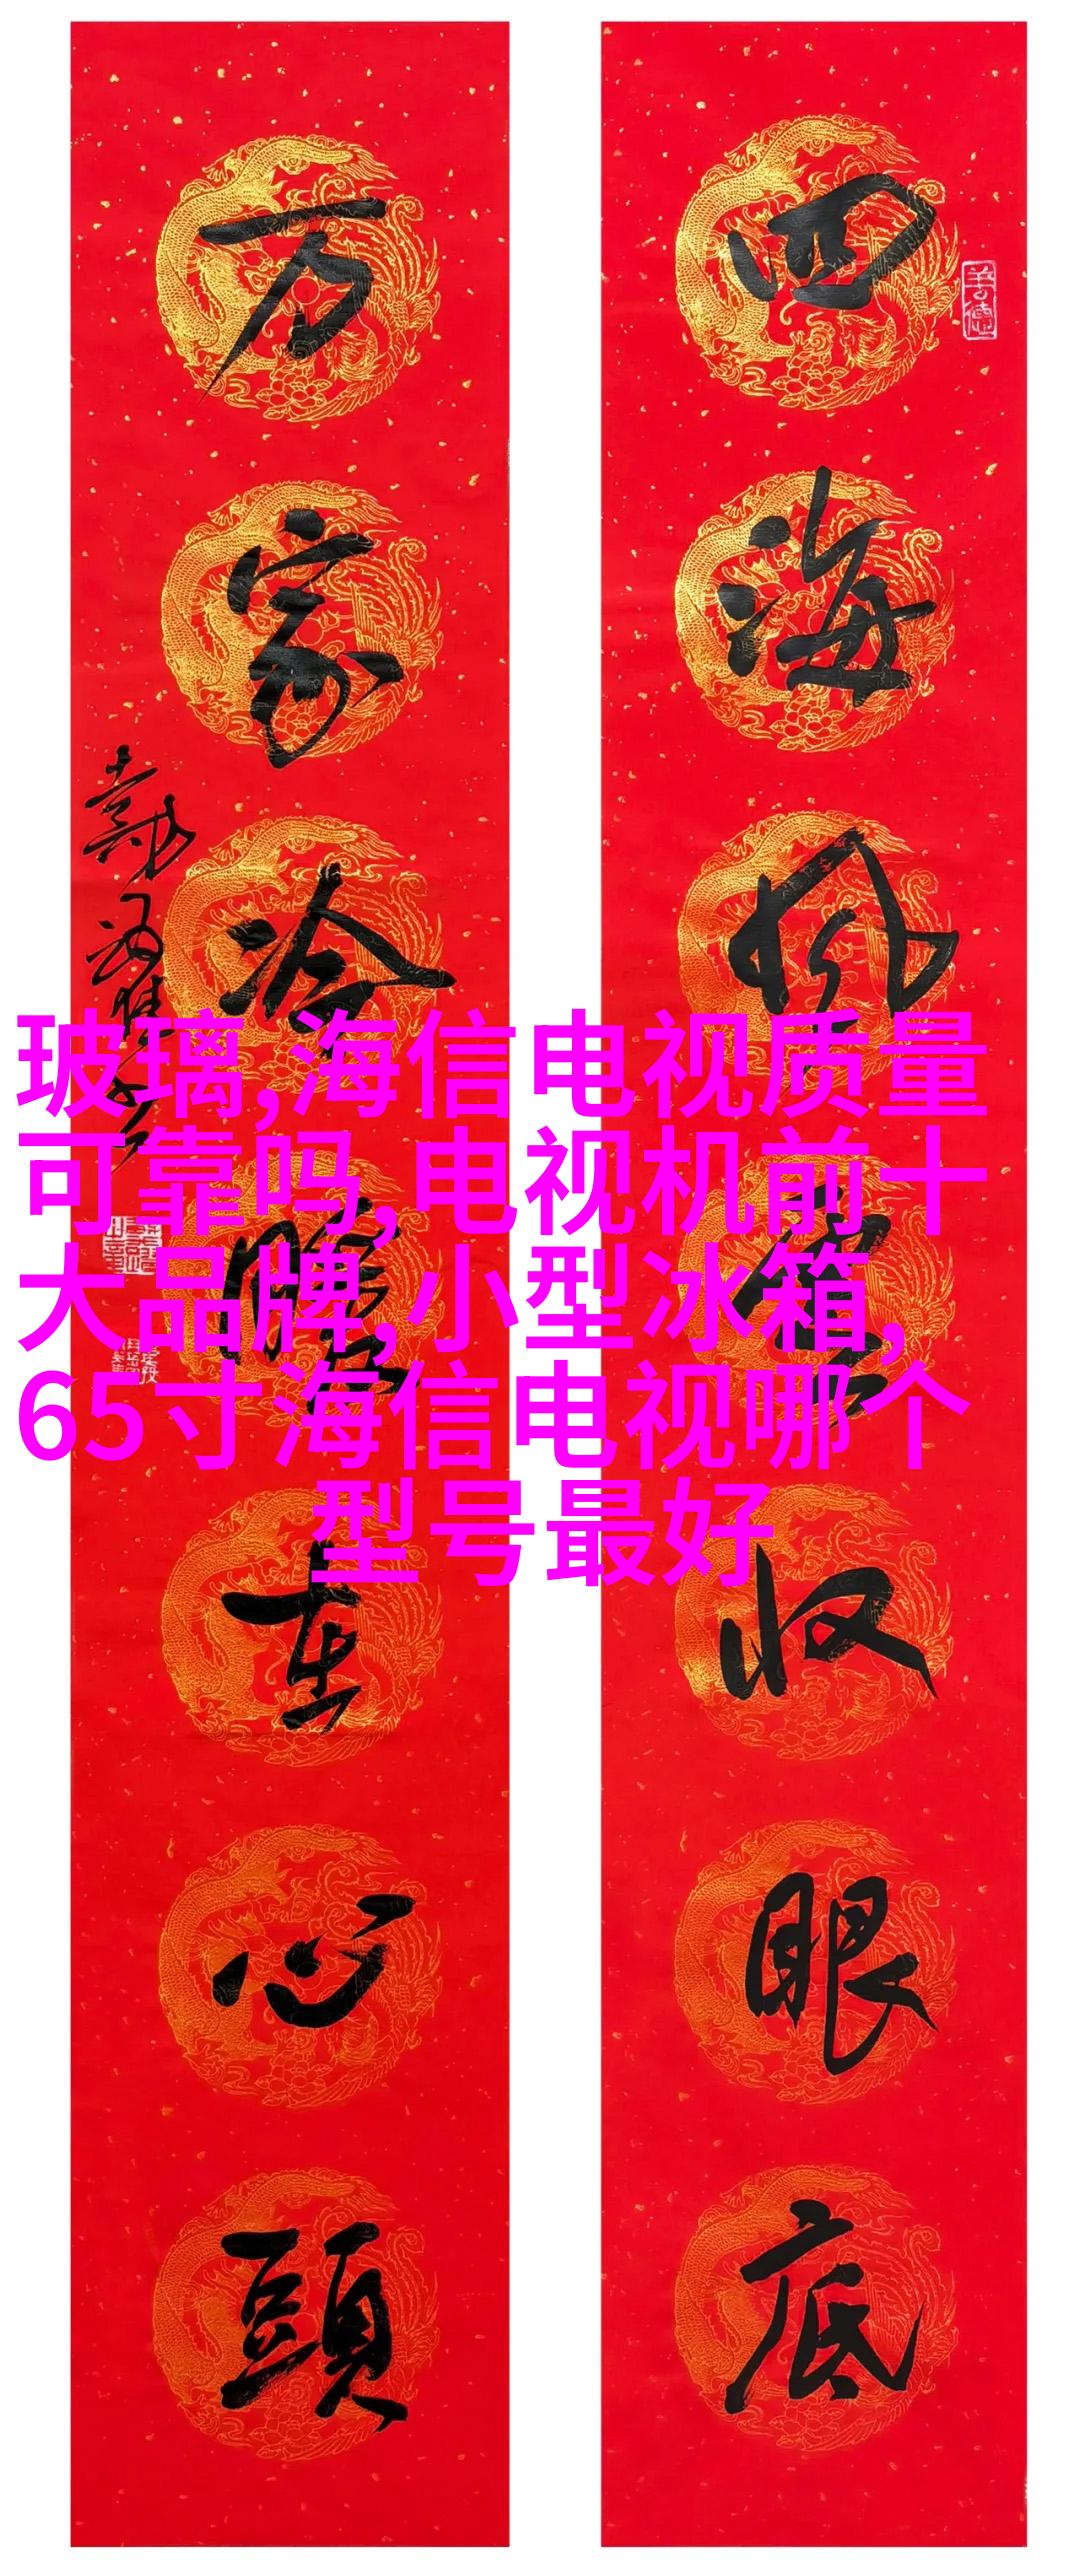 四海风雲收眼底
万家冷暖在心頭
玻璃,海信电视质量
可靠吗,电视机前十
大品牌,小型冰箱,
65寸海信电视哪个
型号最好